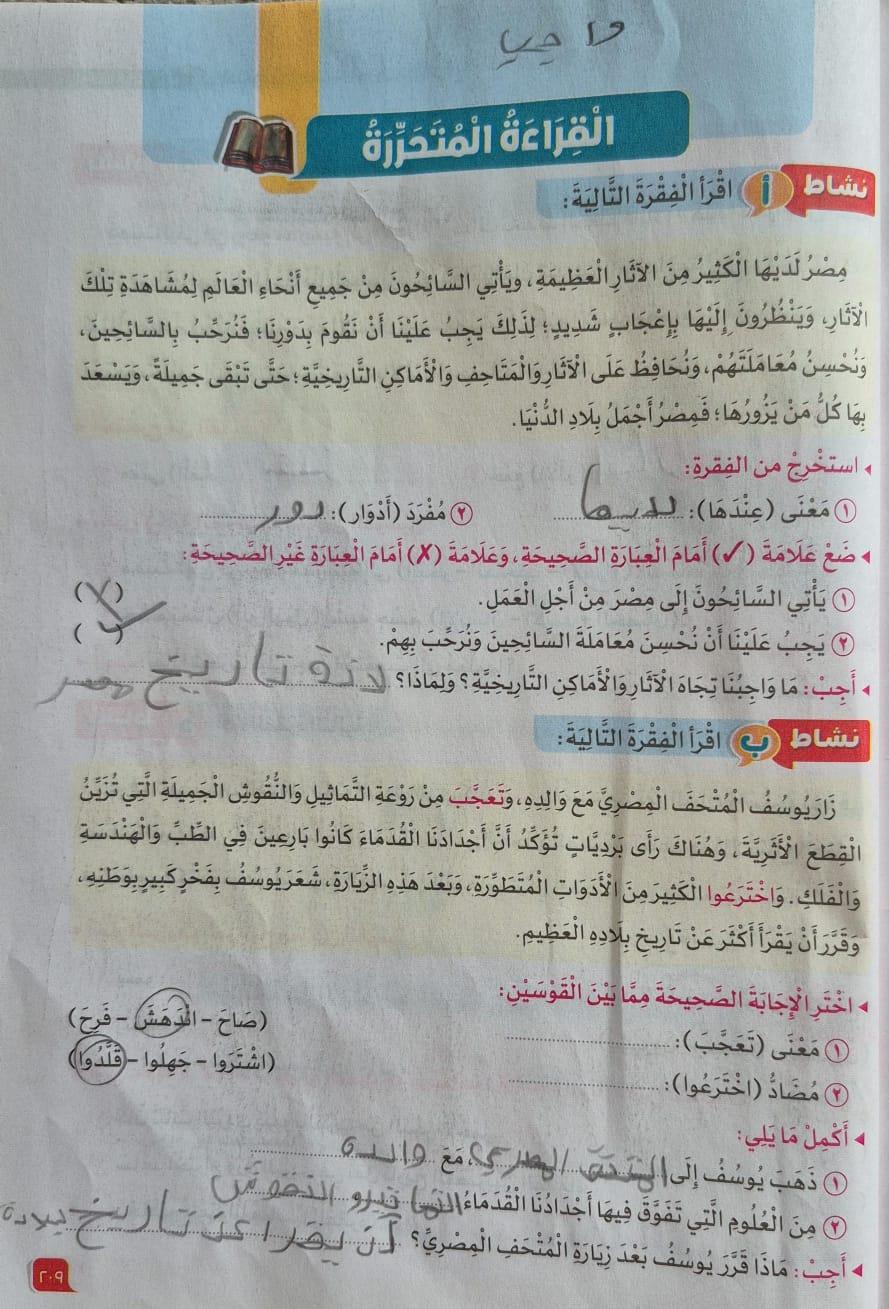 واجب
الْقِرَاءَةُ الْمُتَحَرِّرَةُ
نشاط أ اقْرَأِ الْفِقْرَةَ التَّالِيَةَ:
مِصْرُ لَدَيْهَا الْكَثِيرُ مِنَ الآثَارِ الْعَظِيمَةِ، ويَأْتِي السَّائِحُونَ مِنْ جَمِيعِ أَنْحَاءِ الْعَالَمِ لِمُشَاهَدَةِ تِلْكَ
الْآثَارِ، وَيَنْظُرُونَ إِلَيْهَا بِإِعْجَابٍ شَدِيدٍ؛ لِذَلِكَ يَجِبُ عَلَيْنَا أَنْ نَقُومَ بِدَوْرِنَا؛ فَنُرَحِّبُ بِالسَّائِحِينَ،
وَنُحْسِنُ مُعَامَلَتَهُمْ، وَنُحَافِظُ عَلَى الْآثَارِ وَالْمَتَاحِفِ وَالْأَمَاكِنِ التَّارِيخِيَّةِ؛ حَتَّى تَبْقَى جَمِيلَةً، وَيَسْعَدَ
بِهَا كُلُّ مَنْ يَزُورُهَا؛ فَمِصْرُ أَجْمَلُ بِلَادِ الدُّنْيَا.
استخْرِجْ من الفِقرةِ:
١ مَعْنَى (عِنْدَهَا): لديها ٢ مُفْرَدَ (أَدْوَار): دور
ضَعْ عَلَامَةَ (✓) أَمَامَ الْعِبَارَةِ الصَّحِيحَةِ، وَعَلَامَةَ (✗) أَمَامَ الْعِبَارَةِ غَيْرِ الصَّحِيحَةِ:
١ يَأْتِي السَّائِحُونَ إِلَى مِصْرَ مِنْ أَجْلِ الْعَمَلِ. (✗)
٢ يَجِبُ عَلَيْنَا أَنْ نُحْسِنَ مُعَامَلَةَ السَّائِحِينَ وَنُرَحِّبَ بِهِمْ. (✓)
أَجِبْ: مَا وَاجِبُنَا تِجَاهَ الْآثَارِ وَالْأَمَاكِنِ التَّارِيخِيَّةِ؟ وَلِمَاذَا؟ لانة تاريخ مصر
نشاط ب اقْرَأِ الْفِقْرَةَ التَّالِيَةَ:
زَارَ يُوسُفُ الْمُتْحَفَ الْمِصْرِيَّ مَعَ وَالِدِهِ، وَتَعَجَّبَ مِنْ رَوْعَةِ التَّمَاثِيلِ وَالنُّقُوشِ الْجَمِيلَةِ الَّتِي تُزَيِّنُ
الْقِطَعَ الْأَثَرِيَّةَ، وَهُنَاكَ رَأَى بَرْدِيَّاتٍ تُؤَكِّدُ أَنَّ أَجْدَادَنَا الْقُدَمَاءَ كَانُوا بَارِعِينَ فِي الطِّبِّ وَالْهَنْدَسَةِ
وَالْفَلَكِ. وَاخْتَرَعُوا الْكَثِيرَ مِنَ الْأَدَوَاتِ الْمُتَطَوِّرَةِ، وَبَعْدَ هَذِهِ الزِّيَارَةِ، شَعَرَ يُوسُفُ بِفَخْرٍ كَبِيرٍ بِوَطَنِهِ،
وَقَرَّرَ أَنْ يَقْرَأَ أَكْثَرَ عَنْ تَارِيخِ بِلَادِهِ الْعَظِيمِ.
اخْتَرِ الْإِجَابَةَ الصَّحِيحَةَ مِمَّا بَيْنَ الْقَوْسَيْنِ:
١ مَعْنَى (تَعَجَّبَ): (صَاحَ – انْدَهَشَ – فَرِحَ)
٢ مُضَادُّ (اخْتَرَعُوا): (اشْتَرَوا – جَهِلُوا – قَلَّدُوا)
أَكْمِلْ مَا يَلِي:
١ ذَهَبَ يُوسُفُ إِلَى المصري، مَعَ والدة
٢ مِنَ الْعُلُومِ الَّتِي تَفَوَّقَ فِيهَا أَجْدَادُنَا الْقُدَمَاءُ النقوش
أَجِبْ: مَاذَا قَرَّرَ يُوسُفُ بَعْدَ زِيَارَةِ الْمُتْحَفِ الْمِصْرِيِّ؟ أن يقرا عن تاريخ بلادة
٢٠٩